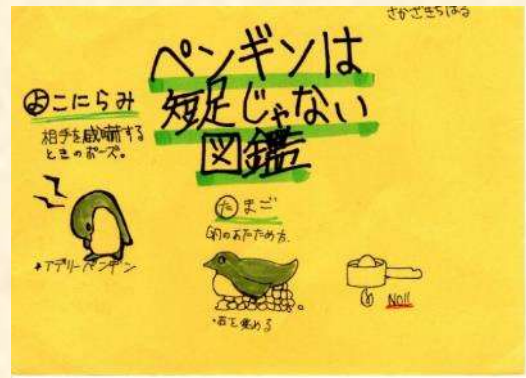 さかざきちはる
ペンギンは
短足じゃない
図鑑
よこにらみ
相手を威嚇する
ときのポーズ。
・アデリーペンギン
たまご
卵のあたため方。
・石を集める
NO!!